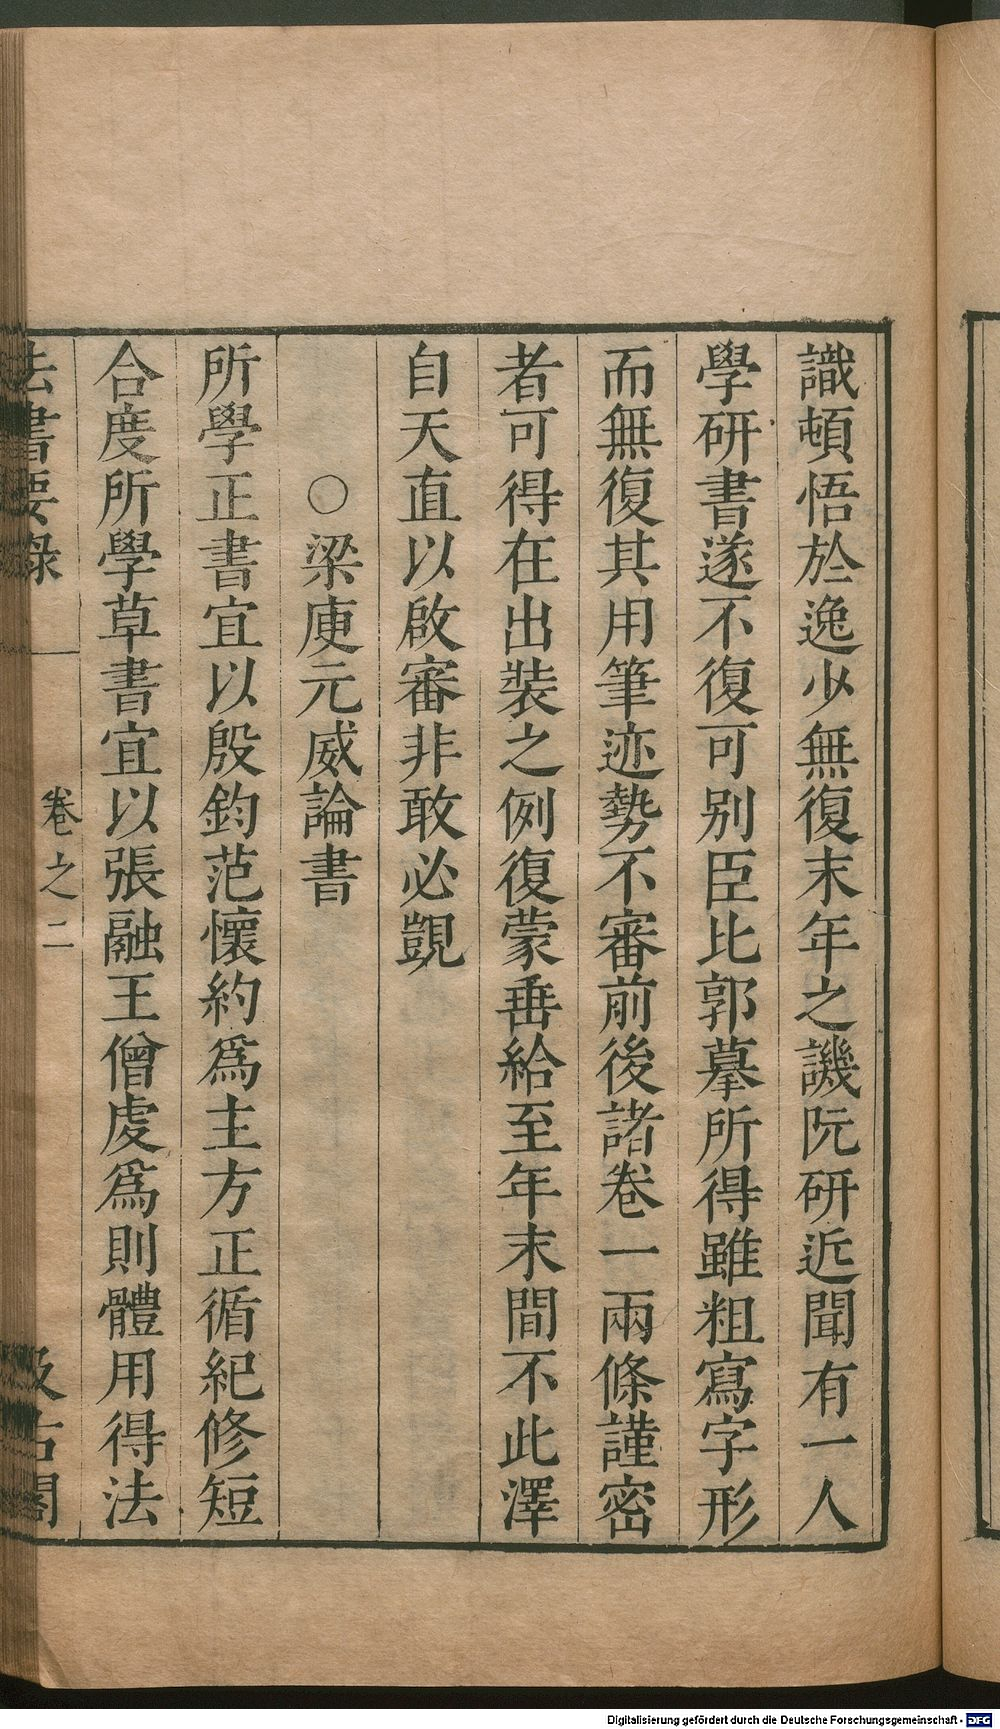 識頓悟於逸少無復末年之譏阮研近聞有一人
學研書遂不復可别臣比郭摹所得雖粗寫字形
而無復其用筆迹勢不審前後諸卷一兩條謹密
者可得在出裝之例復蒙垂給至年末間不此澤
自天直以啟審非敢必覬
○梁庾元威論書
所學正書宜以殷鈞范懷約爲主方正循紀修短
合度所學草書宜以張融王僧虔爲則體用得法
法書要錄 卷之二 汲古閣
Digitalisierung gefördert durch die Deutsche Forschungsgemeinschaft - DFG